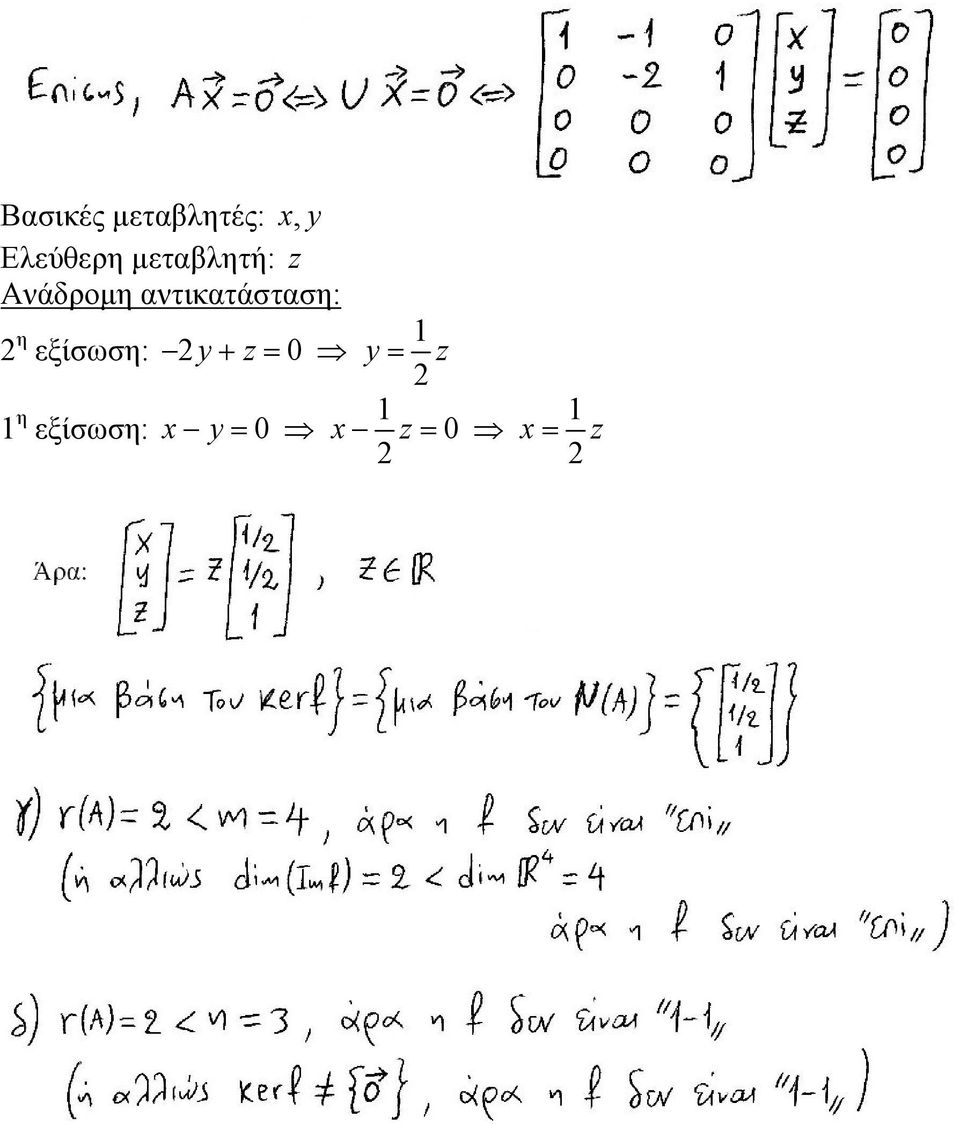 Επίσης, A\vec{x} = \vec{0} ⇔ U\vec{x} = \vec{0} ⇔ \begin{bmatrix} 1 & -1 & 0 \\ 0 & -2 & 1 \\ 0 & 0 & 0 \\ 0 & 0 & 0 \end{bmatrix} \begin{bmatrix} x \\ y \\ z \end{bmatrix} = \begin{bmatrix} 0 \\ 0 \\ 0 \\ 0 \end{bmatrix}
Βασικές μεταβλητές: x, y
Ελεύθερη μεταβλητή: z
Ανάδρομη αντικατάσταση:
2η εξίσωση: −2y + z = 0 ⇒ y = \frac{1}{2} z
1η εξίσωση: x − y = 0 ⇒ x − \frac{1}{2} z = 0 ⇒ x = \frac{1}{2} z
Άρα: \begin{bmatrix} x \\ y \\ z \end{bmatrix} = z \begin{bmatrix} 1/2 \\ 1/2 \\ 1 \end{bmatrix} , z ∈ ℝ
{μια βάση του kerf} = {μια βάση του N(A)} = { \begin{bmatrix} 1/2 \\ 1/2 \\ 1 \end{bmatrix} }
γ) r(A) = 2 < m = 4, άρα η f δεν είναι "επί"
(ή αλλιώς dim(Imf) = 2 < dim ℝ⁴ = 4
άρα η f δεν είναι "επί")
δ) r(A) = 2 < n = 3, άρα η f δεν είναι "1-1"
(ή αλλιώς kerf ≠ {\vec{0}}, άρα η f δεν είναι "1-1")